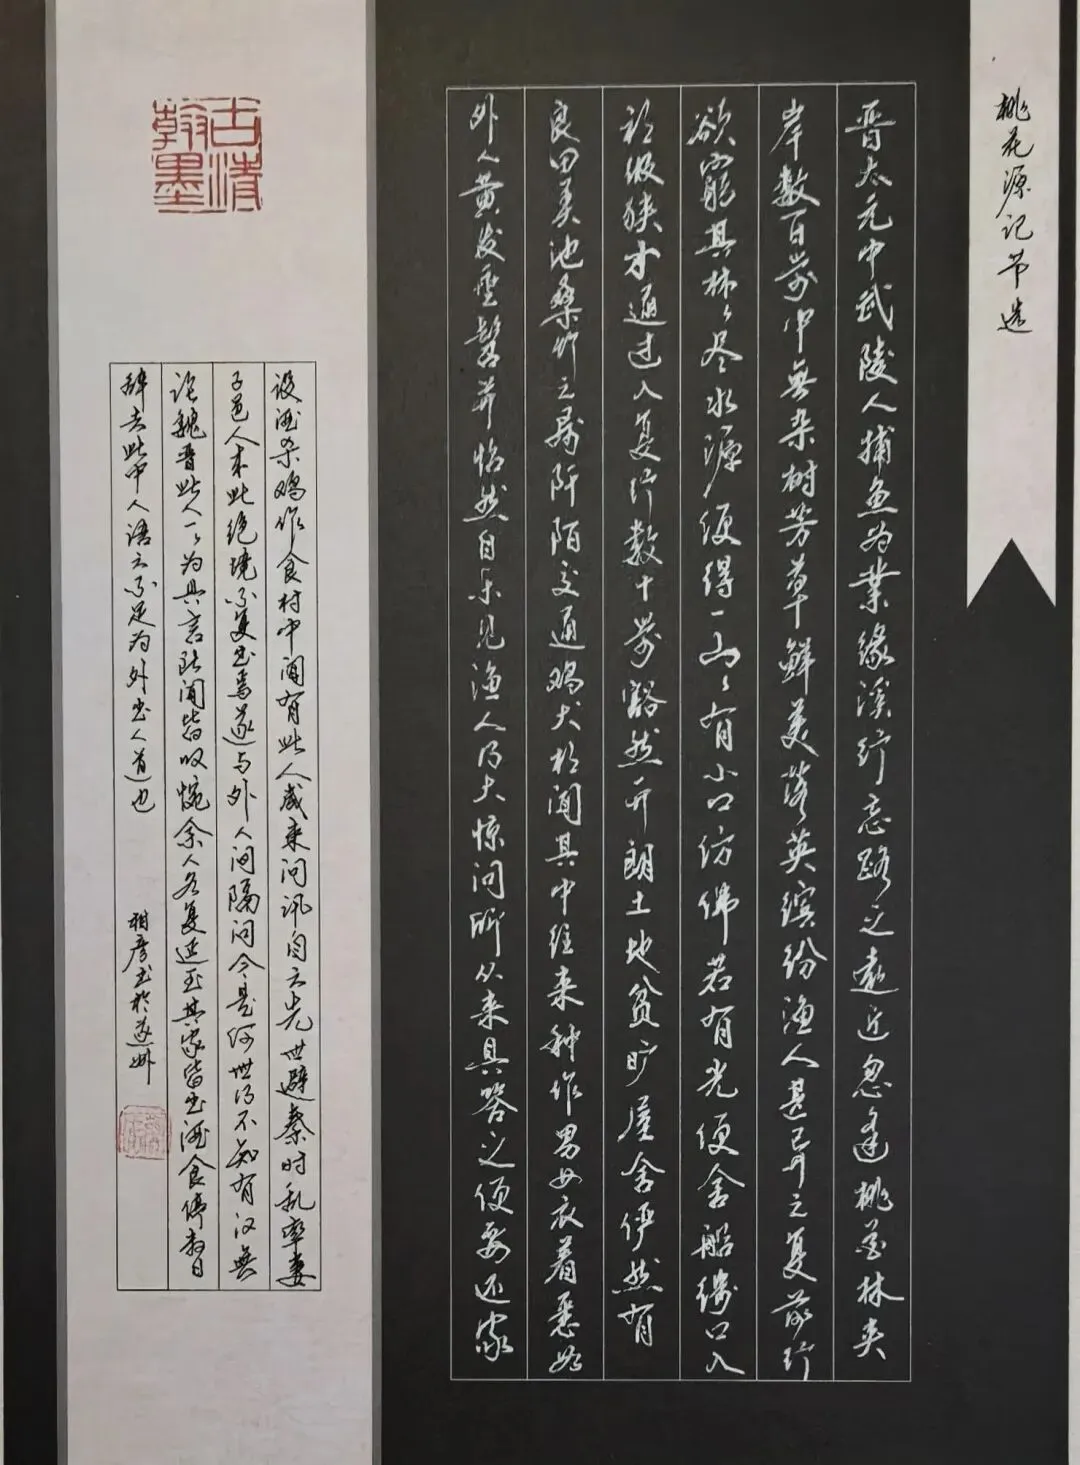 桃花源记节选
晋太元中武陵人捕鱼为业缘溪行忘路之远近忽逢桃花林夹
岸数百步中无杂树芳草鲜美落英缤纷渔人甚异之复前行
欲穷其林々尽水源便得一山々有小口仿佛若有光便舍船从口入
初极狭才通过人复行数十步豁然开朗土地贫旷屋舍俨然有
良田美池桑竹之属阡陌交通鸡犬相闻其中往来种作男女衣着悉如
外人黄发垂髫并怡然自乐见渔人乃大惊问所从来具答之便要还家
设酒杀鸡作食村中闻有此人咸来问讯自云先世避秦时乱率妻
子邑人来此绝境不复出焉遂与外人间隔问今是何世乃不知有汉无
论魏晋此人一々为具言所闻皆叹惋余人各复延至其家皆出酒食停数日
辞去此中人语云不足为外出人道也
相彦书于遂州
古清
翰墨